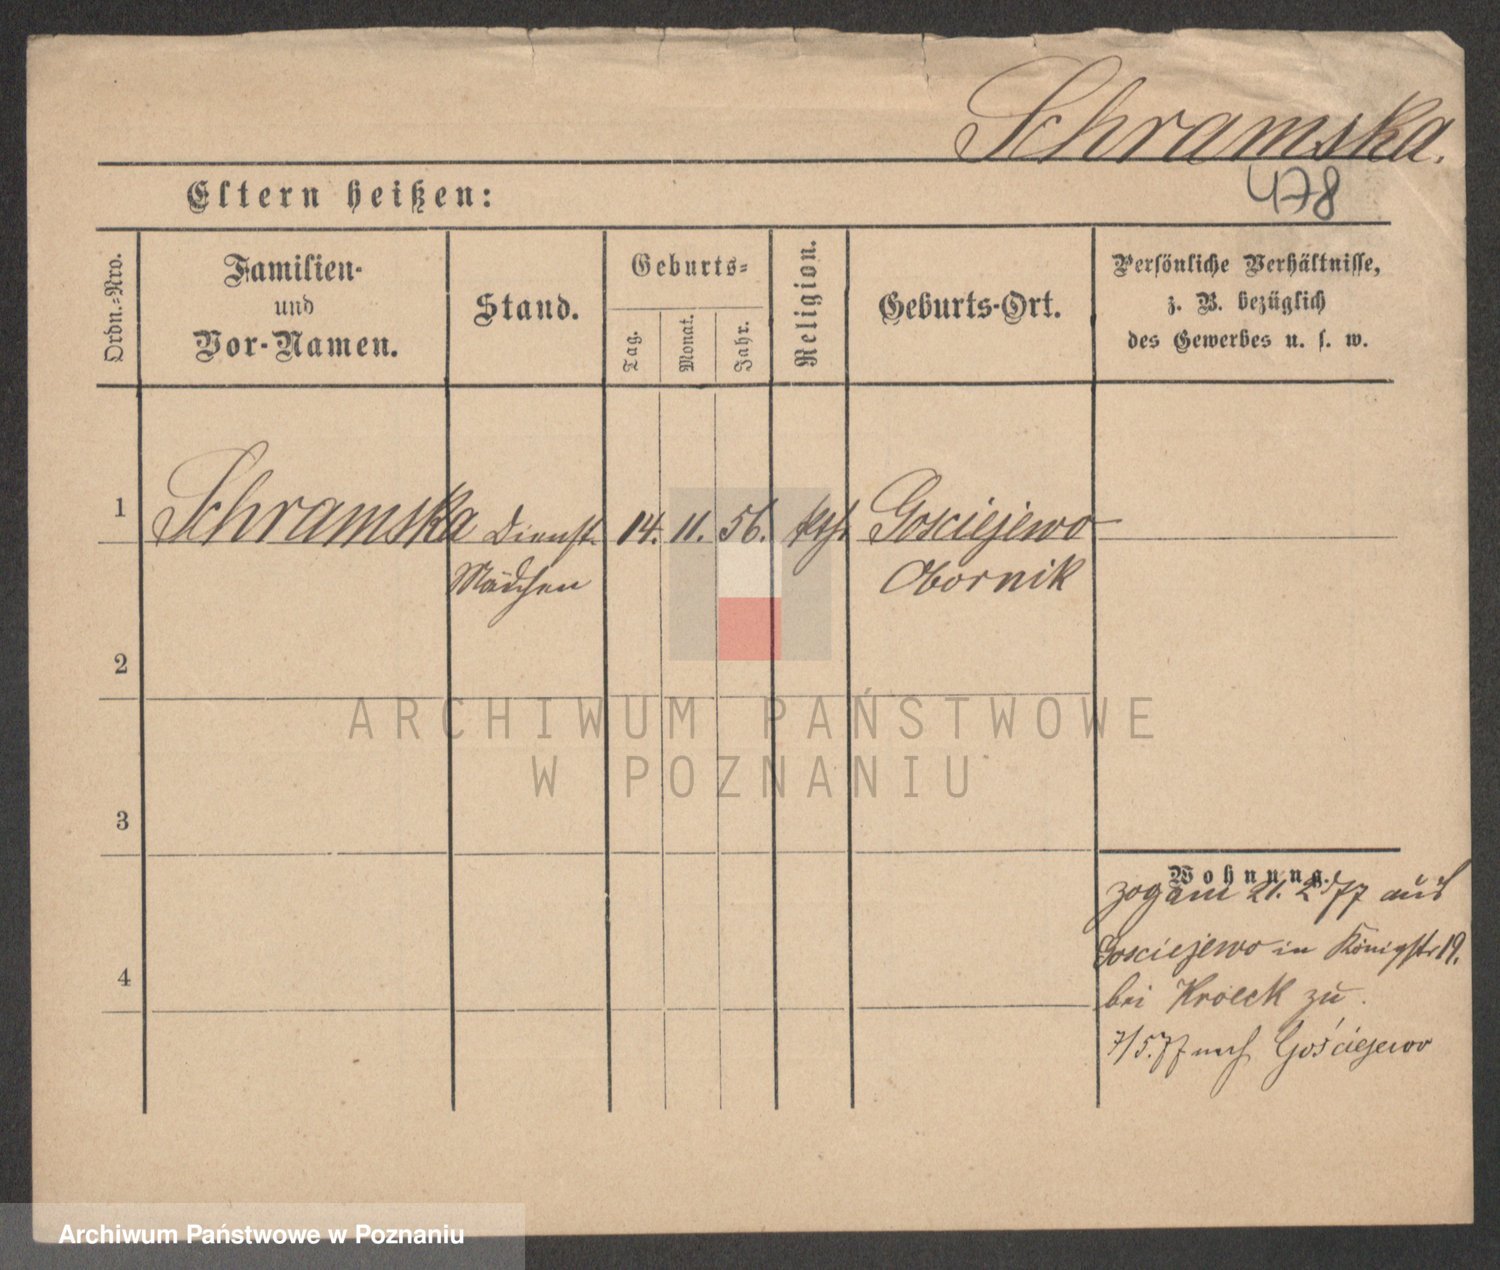 Schramska.
478
Eltern heißen:
Ordn.=Nro.
Familien-
und
Vor-Namen.
Stand.
Geburts=
Tag.
Monat.
Jahr.
Religion.
Geburts-Ort.
Persönliche Verhältnisse,
z. B. bezüglich
des Gewerbes u. s. w.
1
Schramska
Dienst
Mädchen
14. 11. 56.
kth
Gosciejewo
Obornik
2
3
4
Wohnung.
zog am 21. 2 77 aus
Gosciejewo in Königstr 19.
bei Kroeck zu.
7/5.77 nach Gościejewo
ARCHIWUM PAŃSTWOWE
W POZNANIU
Archiwum Państwowe w Poznaniu